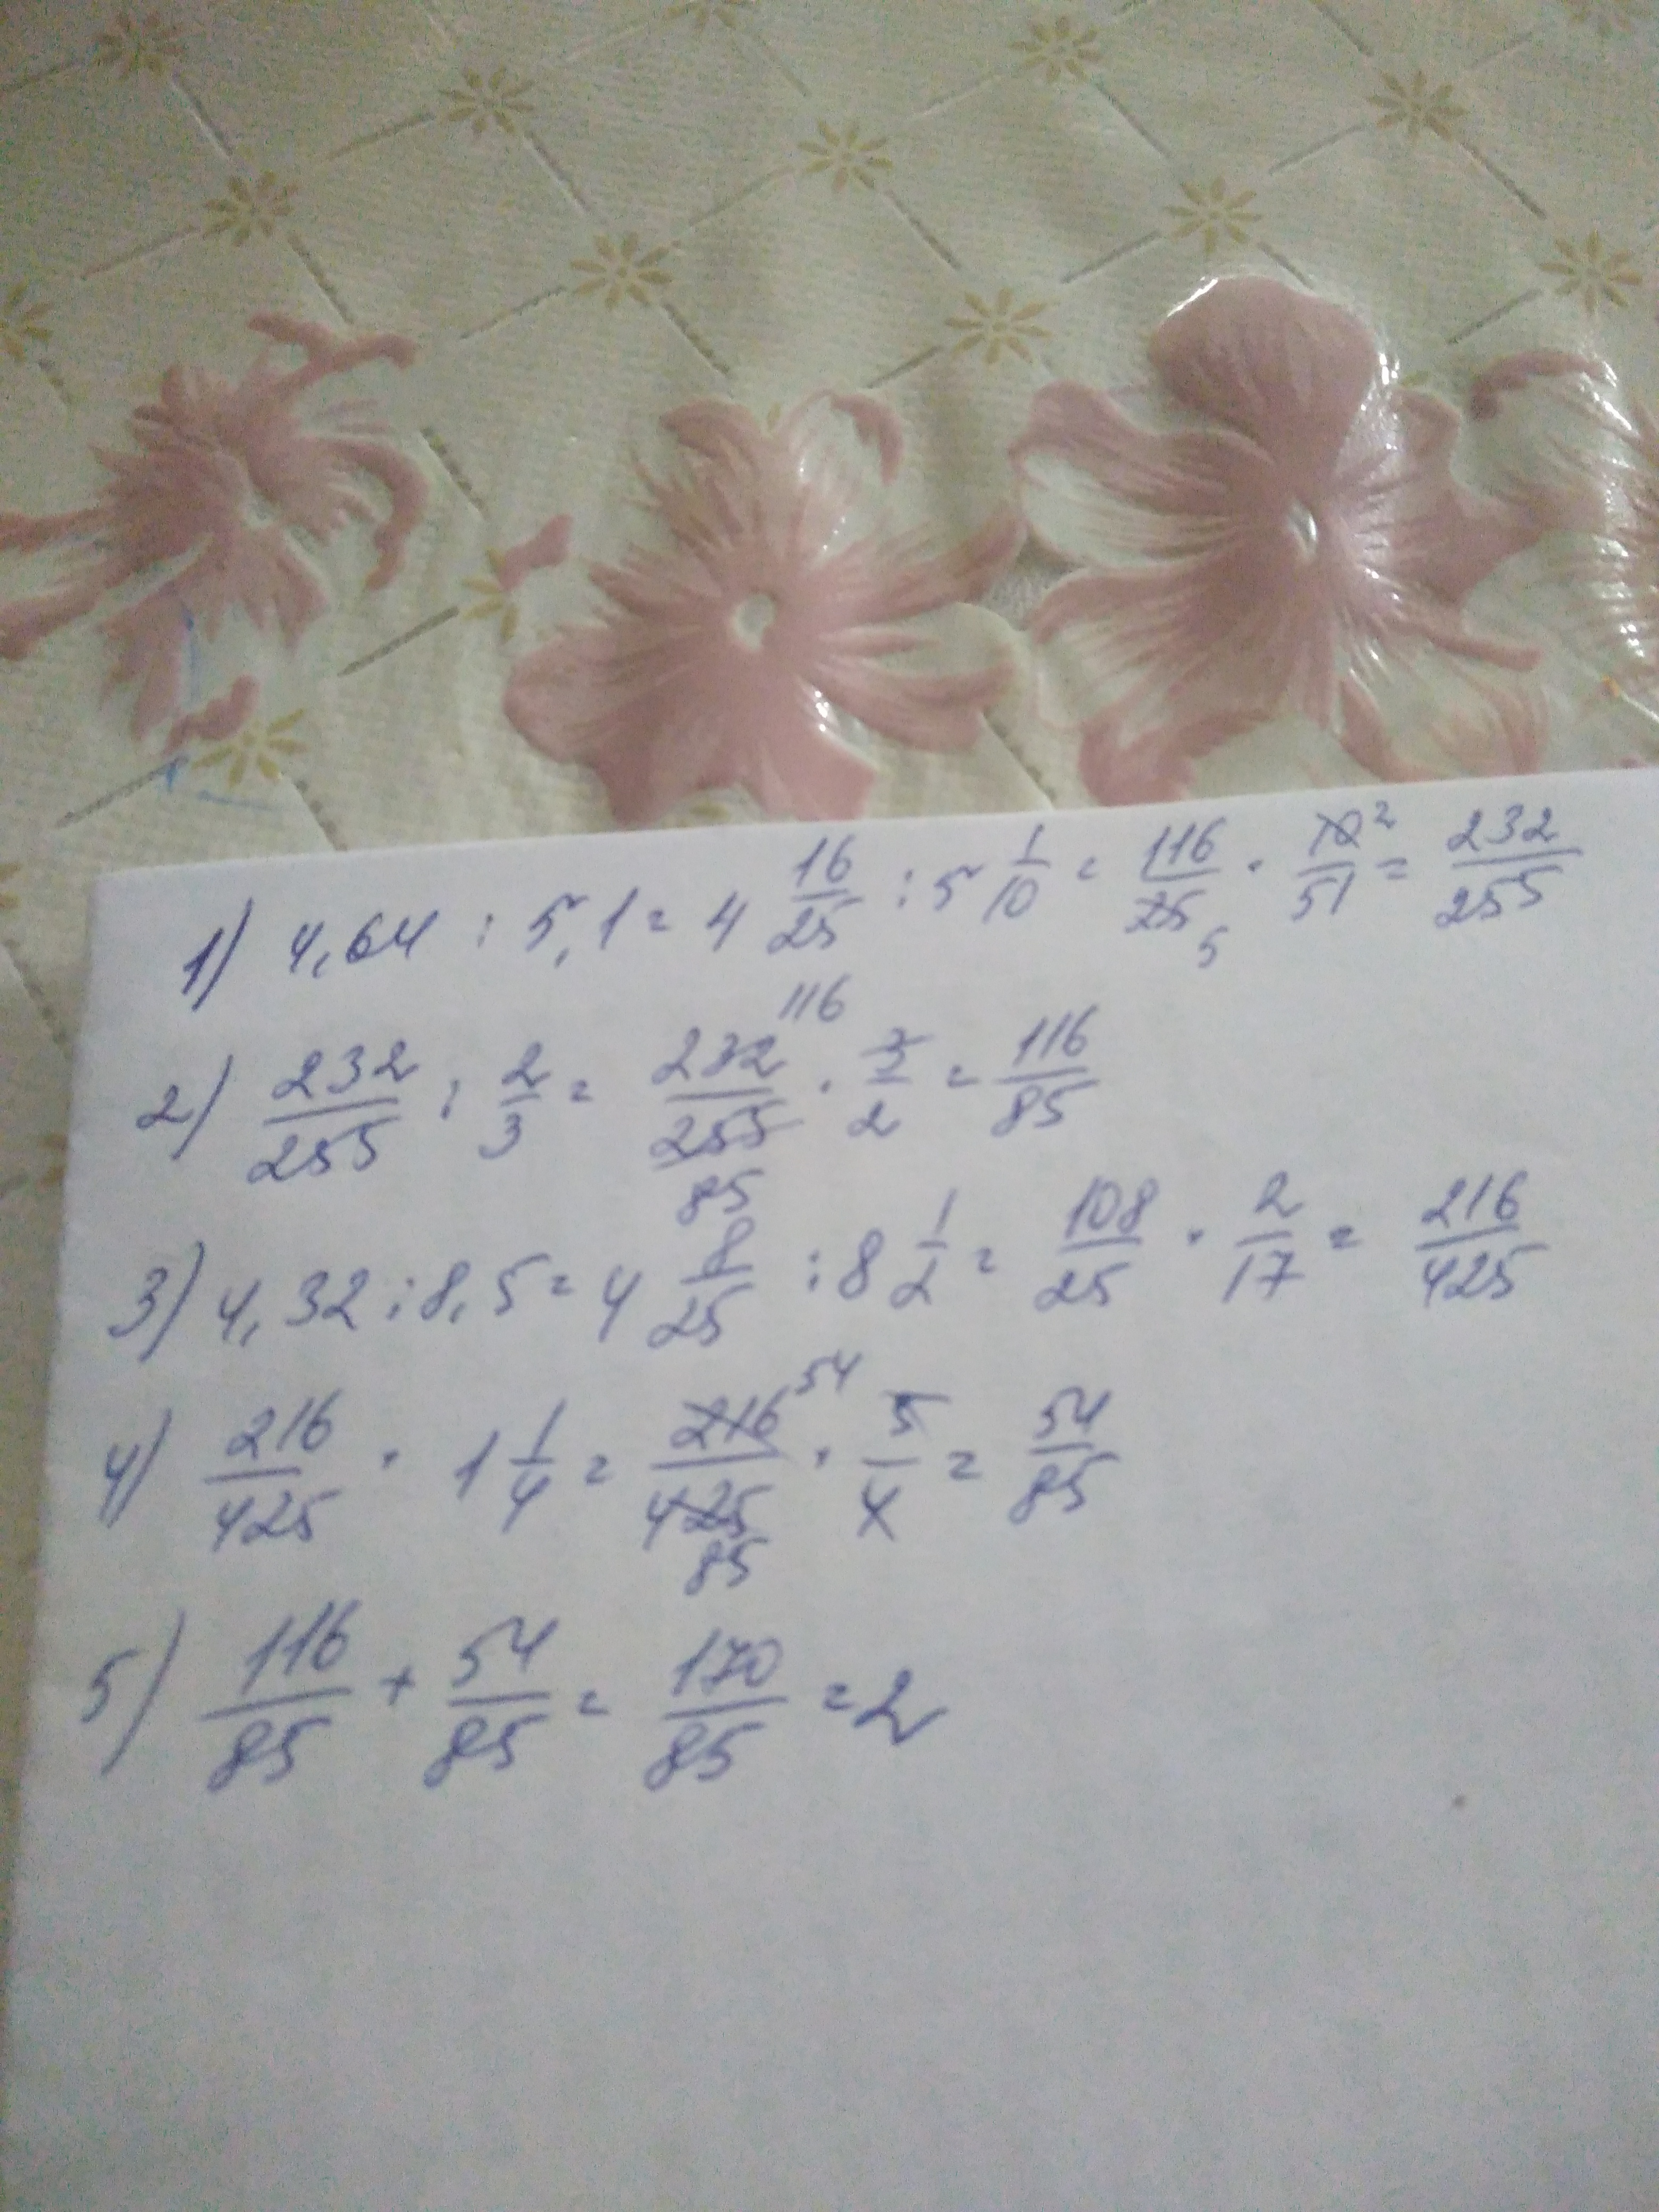 1) 4,64 : 5,1 = 4 16/25 : 5 1/10 = 116/25 5 · 10 2/51 = 232/255
2) 232/255 : 2/3 = 232 116/255 85 · 3/2 = 116/85
3) 4,32 : 8,5 = 4 8/25 : 8 1/2 = 108/25 · 2/17 = 216/425
4) 216/425 · 1 1/4 = 216 54/425 85 · 5/4 = 54/85
5) 116/85 + 54/85 = 170/85 = 2